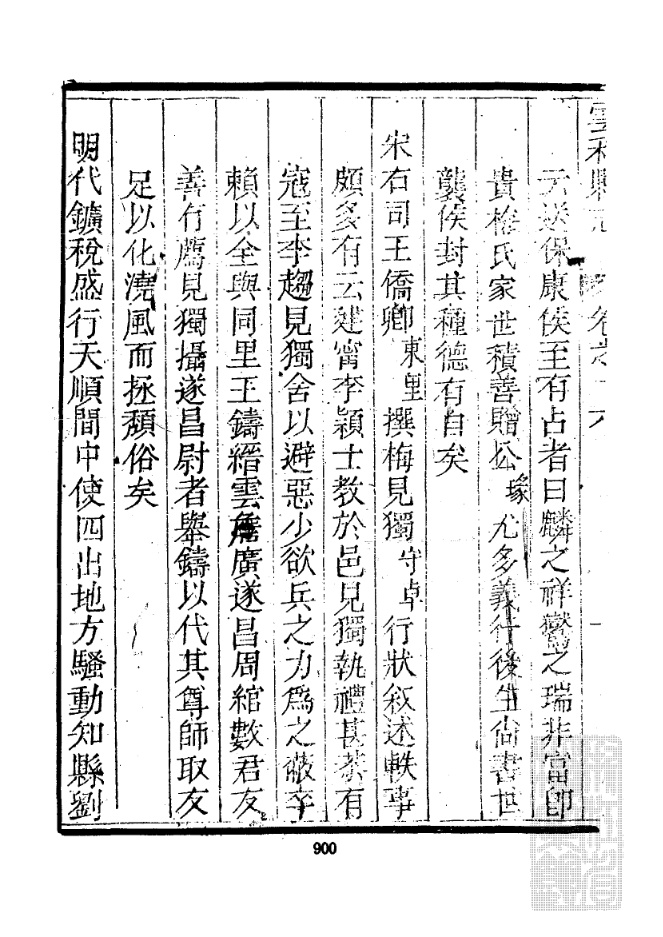 雲和縣志 卷之十六
云送保康侯至有占者曰麟之祥鸞之瑞非富卽
貴梅氏家世積善贈公琢尤多義行後生尙書世
襲侯封其種德有自矣
宋右司王僑卿東里撰梅見獨守卓行狀叙述軼事
頗多有云建甯李穎士教於邑見獨執禮甚恭有
寇至李趨見獨舍以避惡少欲兵之力爲之蔽卒
賴以全與同里王鑄縉雲詹廣遂昌周綰數君友
善有薦見獨攝遂昌尉者舉鑄以代其尊師取友
足以化澆風而拯頹俗矣
明代鑛稅盛行天順間中使四出地方騷動知縣劉
900